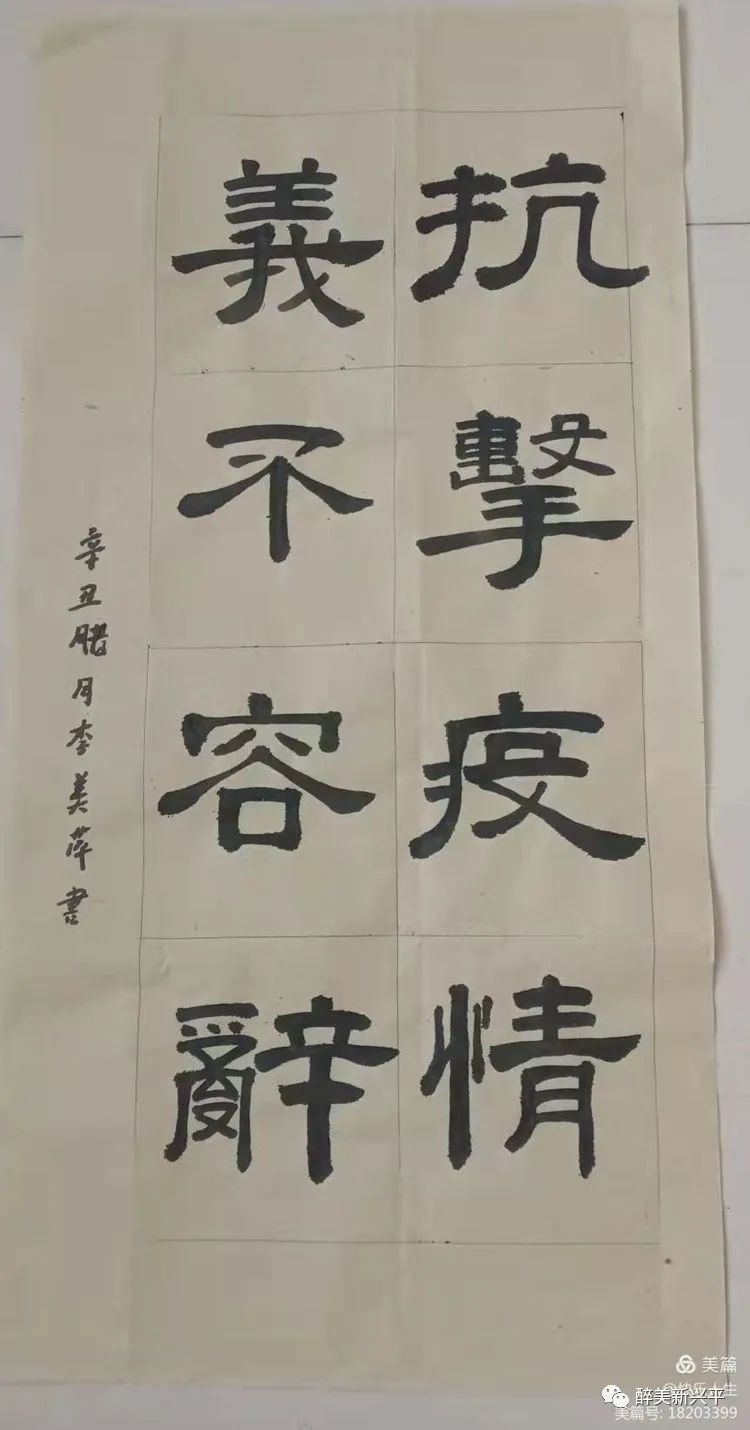 抗擊疫情
義不容辭
辛丑腊月李美萍書
美篇
@快乐人生
醉美新兴平
美篇号: 18203399